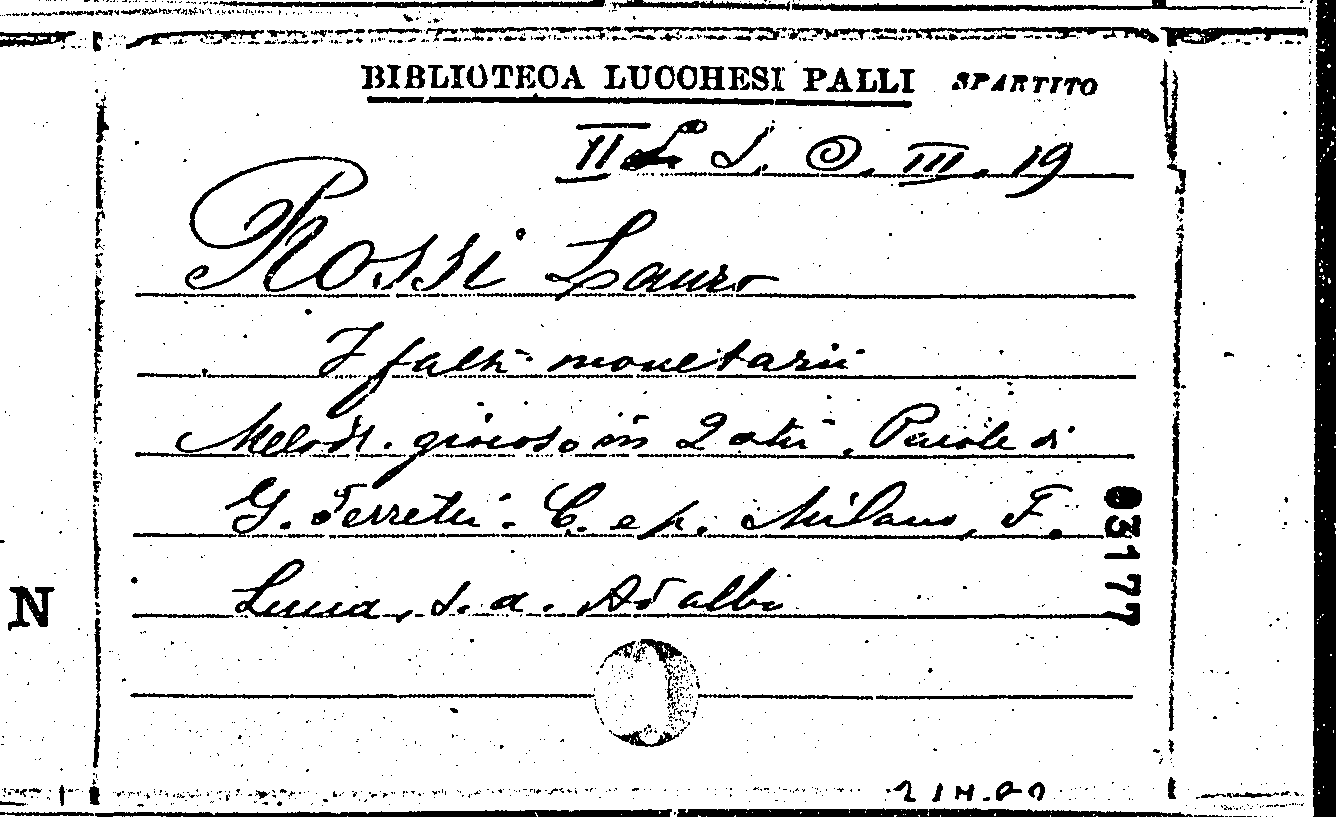 BIBLIOTECA LUCCHESI PALLI SPARTITO
II S. O. III. 19
Rossi Lauro
I falsi monetarii
Melodr. giocoso in 2 atti, Parole di
G. Ferretti. C. e p. Milano, F.
Lucca, s. a. Ad albi
03177
N